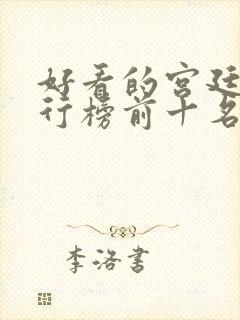 好看的宫廷
行榜前十名
李洛书